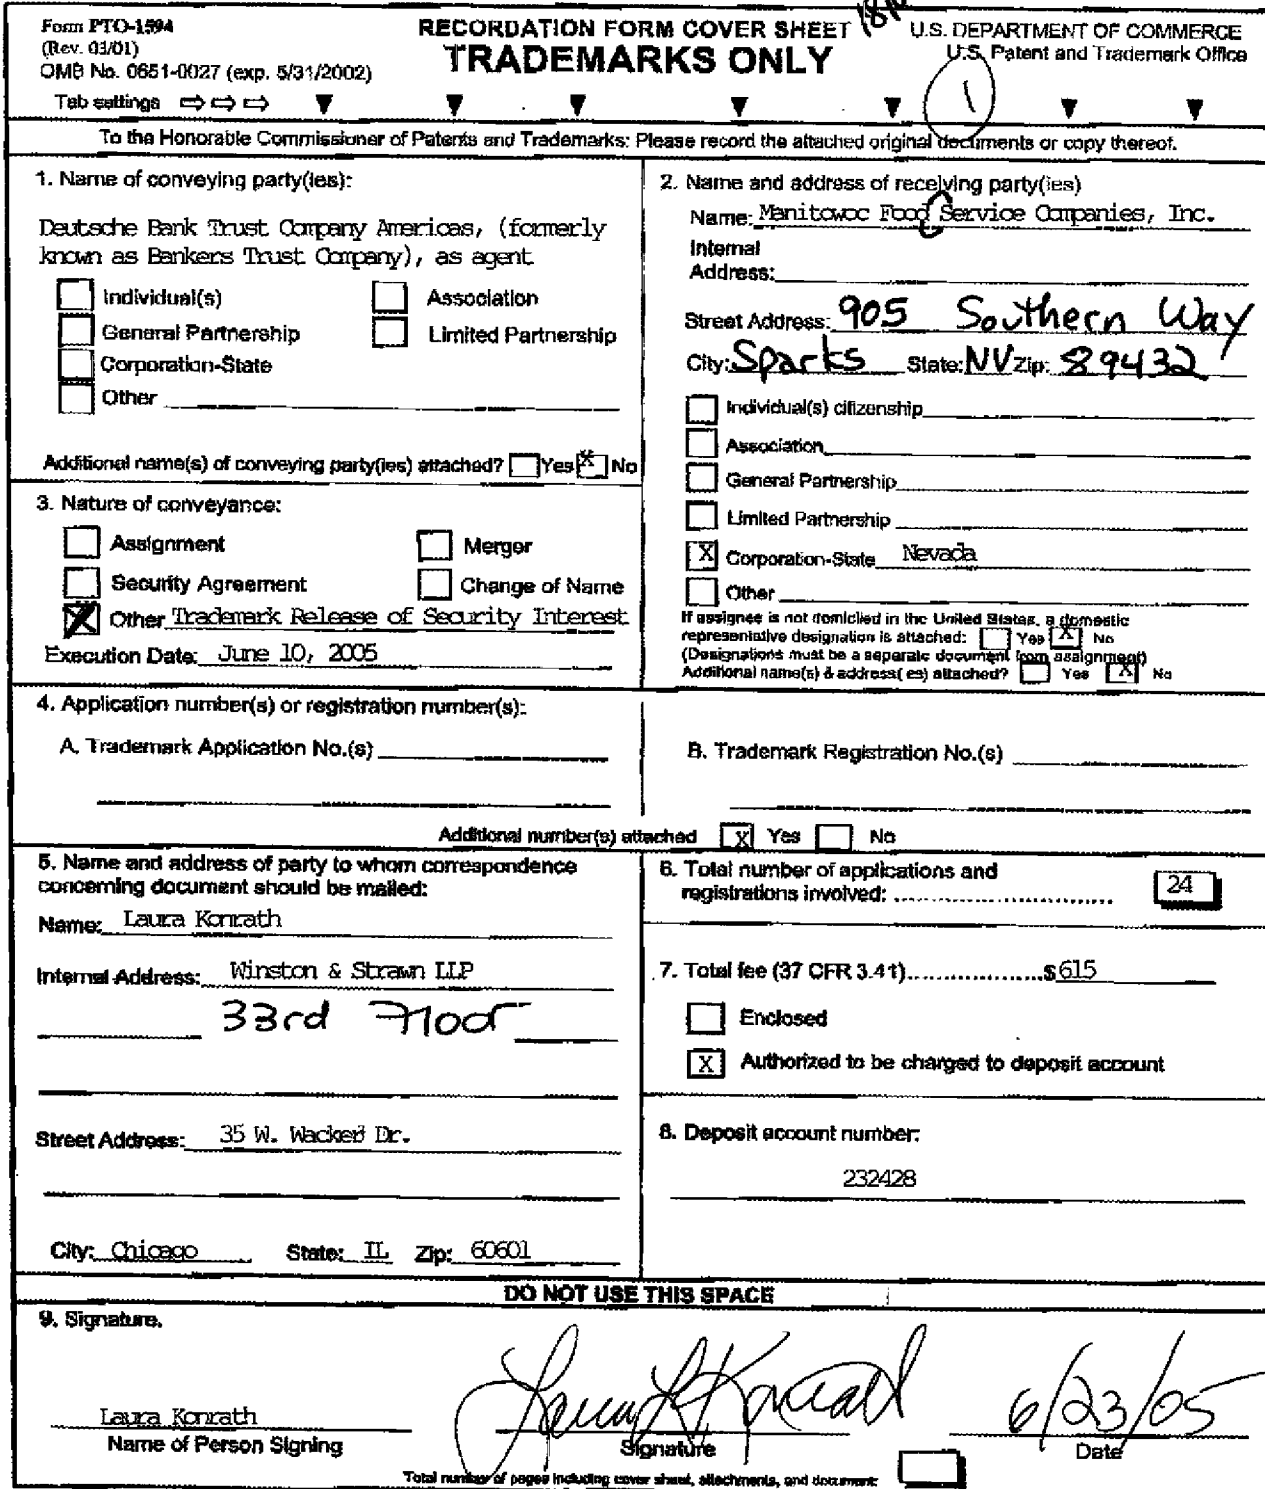 Form PTO-1594
(Rev. 03/01)
OMB No. 0651-0027 (exp. 5/31/2002)
RECORDATION FORM COVER SHEET
TRADEMARKS ONLY
U.S. DEPARTMENT OF COMMERCE
U.S. Patent and Trademark Office
Tab settings ⇨ ⇨ ⇨ ▼ ▼ ▼ ▼ ▼ ▼ ▼
1
To the Honorable Commissioner of Patents and Trademarks: Please record the attached original documents or copy thereof.
1. Name of conveying party(ies):
Deutsche Bank Trust Company Americas, (formerly
known as Bankers Trust Company), as agent
Individual(s) Association
General Partnership Limited Partnership
Corporation-State
Other
Additional name(s) of conveying party(ies) attached? Yes X No
2. Name and address of receiving party(ies)
Name: Manitowoc Food Service Companies, Inc.
Internal
Address:
Street Address: 905 Southern Way
City: Sparks State: NV Zip: 89432
Individual(s) citizenship
Association
General Partnership
Limited Partnership
X Corporation-State Nevada
Other
If assignee is not domiciled in the United States, a domestic
representative designation is attached: Yes X No
(Designations must be a separate document from assignment)
Additional name(s) & address( es) attached? Yes X No
3. Nature of conveyance:
Assignment Merger
Security Agreement Change of Name
X Other Trademark Release of Security Interest
Execution Date: June 10, 2005
4. Application number(s) or registration number(s):
A. Trademark Application No.(s)
B. Trademark Registration No.(s)
Additional number(s) attached X Yes No
5. Name and address of party to whom correspondence
concerning document should be mailed:
Name: Laura Konrath
Internal Address: Winston & Strawn LLP
33rd Floor
Street Address: 35 W. Wacker Dr.
City: Chicago State: IL Zip: 60601
6. Total number of applications and
registrations involved: 24
7. Total fee (37 CFR 3.41) $ 615
Enclosed
X Authorized to be charged to deposit account
8. Deposit account number:
232428
DO NOT USE THIS SPACE
9. Signature.
Laura Konrath
Name of Person Signing
Laura Konrath
Signature
6/23/05
Date
Total number of pages including cover sheet, attachments, and document: